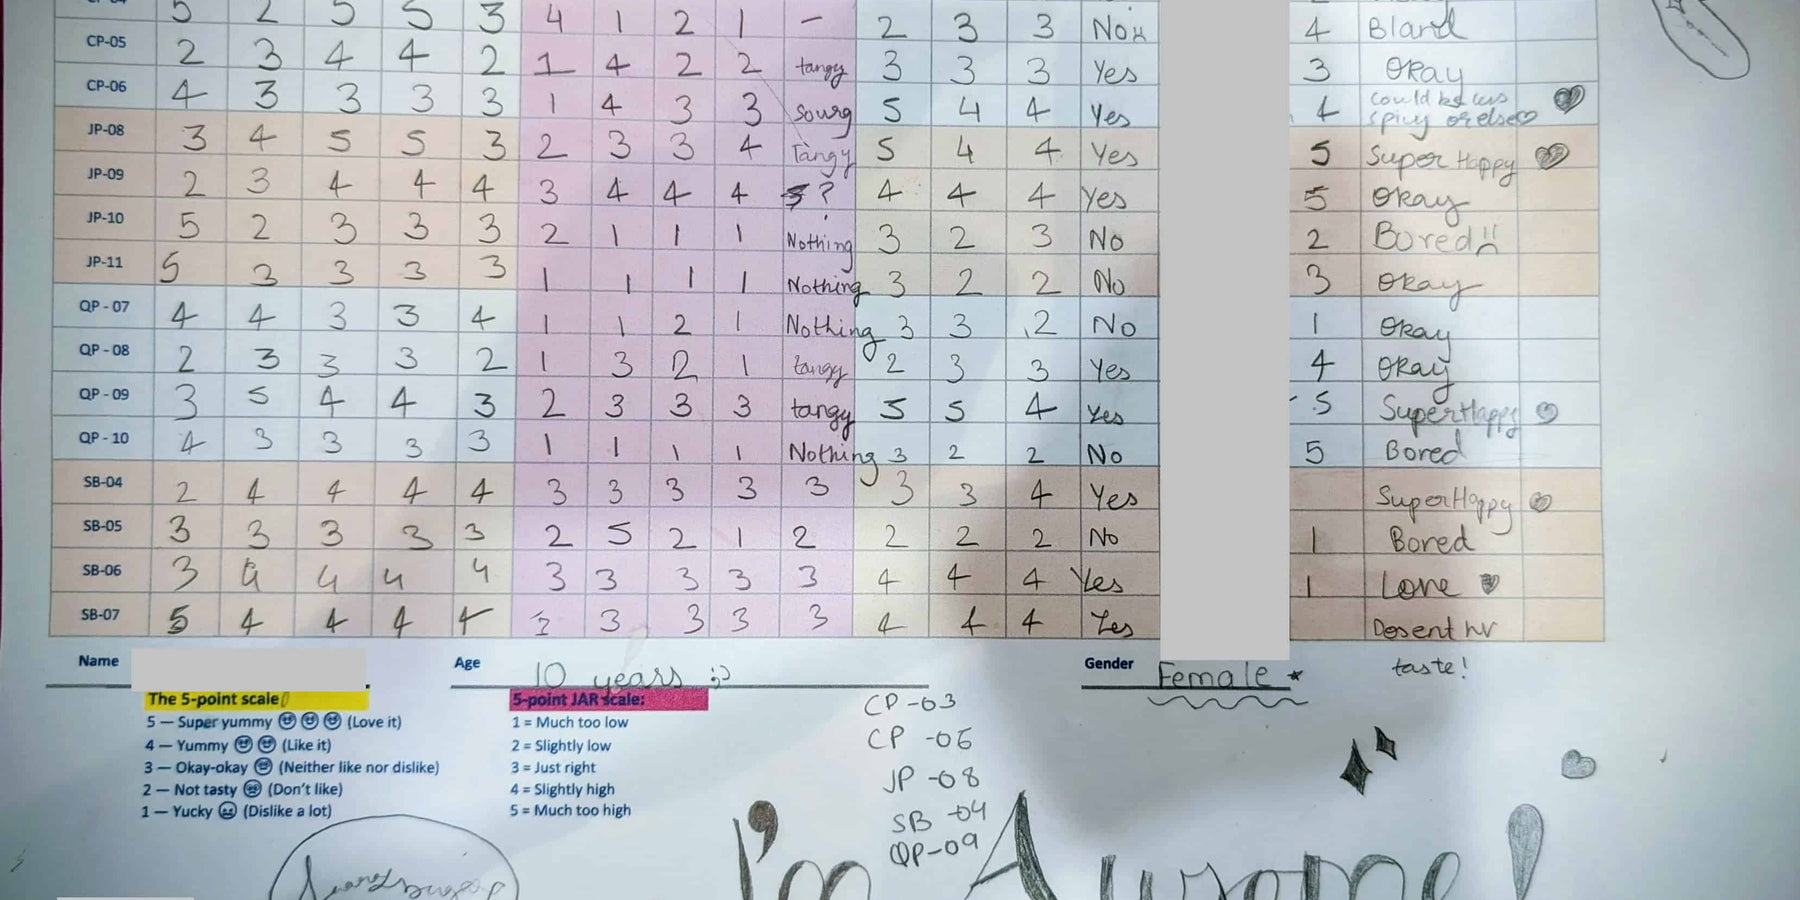 5 2 5 5 3 4 1 2 1 – 2 3 3 No 4 Bland
CP-05 2 3 4 4 2 1 4 2 2 tangy 3 3 3 Yes 3 Okay
CP-06 4 3 3 3 3 1 4 3 3 Sourg 5 4 4 Yes 4 could be less
spicy or else
JP-08 3 4 5 5 3 2 3 3 4 Tangy 5 4 4 Yes 5 Super Happy
JP-09 2 3 4 4 4 3 4 4 4 ? 4 4 4 Yes 5 Okay
JP-10 5 2 3 3 3 2 1 1 1 Nothing 3 2 3 No 2 Bored!!
JP-11 5 3 3 3 3 1 1 1 1 Nothing 3 2 2 No 3 Okay
QP - 07 4 4 3 3 4 1 1 2 1 Nothing 3 3 2 No 1 Okay
QP - 08 2 3 3 3 2 1 3 2 1 tangy 2 3 3 Yes 4 Okay
QP - 09 3 5 4 4 3 2 3 3 3 tangy 5 5 4 Yes 5 Super Happy
QP - 10 4 3 3 3 3 1 1 1 1 Nothing 3 2 2 No 5 Bored
SB-04 2 4 4 4 4 3 3 3 3 3 3 3 4 Yes Super Happy
SB-05 3 3 3 3 3 2 5 2 1 2 2 2 2 No 1 Bored
SB-06 3 4 4 4 4 3 3 3 3 3 4 4 4 Yes 1 Love
SB-07 5 4 4 4 4 3 3 3 3 4 4 4 Yes Dosent hv
taste!
Name Age 10 years ;) Gender Female
The 5-point scale
5 — Super yummy (Love it)
4 — Yummy (Like it)
3 — Okay-okay (Neither like nor dislike)
2 — Not tasty (Don't like)
1 — Yucky (Dislike a lot)
5-point JAR scale:
1 = Much too low
2 = Slightly low
3 = Just right
4 = Slightly high
5 = Much too high
CP -03
CP -06
JP -08
SB -04
QP-09
I'm